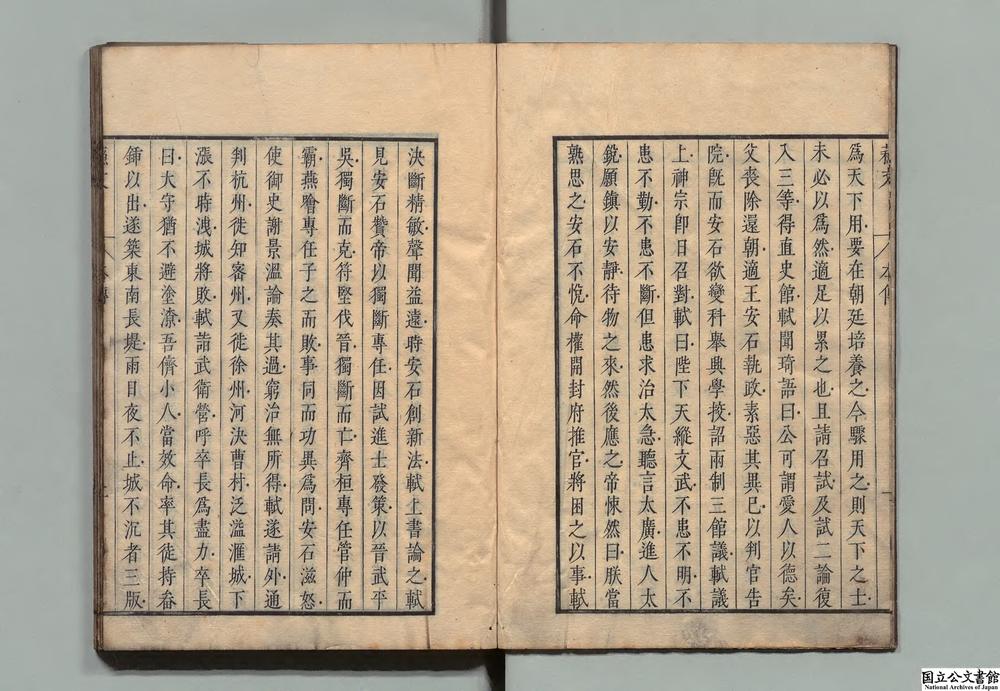 爲天下用要在朝廷培養之今驟用之則天下之士
未必以爲然適足以累之也且請召試及試二論復
入三等得直史館軾聞琦語曰公可謂愛人以德矣
父喪除還朝適王安石執政素惡其異己以判官告
院旣而安石欲變科舉興學挍詔兩制三館議軾議
上神宗卽日召對軾曰陛下天縱文武不患不明不
患不勤不患不斷但患求治太急聽言太廣進人太
銳願鎮以安靜待物之來然後應之帝悚然曰朕當
熟思之安石不悅命權開封府推官將困之以事軾
決斷精敏聲聞益遠時安石創新法軾上書論之軾
見安石贊帝以獨斷專任因試進士發策以晉武平
吳獨斷而克符堅伐晉獨斷而亡齊桓專任管仲而
霸燕噲專任子之而敗事同而功異爲問安石滋怒
使御史謝景溫論奏其過窮治無所得軾遂請外通
判杭州徙知密州又徙徐州河決曹村泛溢滙城下
漲不時洩城將敗軾詣武衛營呼卒長爲盡力卒長
曰大守猶不避塗潦吾儕小人當效命率其徒持畚
鍤以出遂築東南長堤雨日夜不止城不沉者三版
国立公文書館
National Archives of Japan